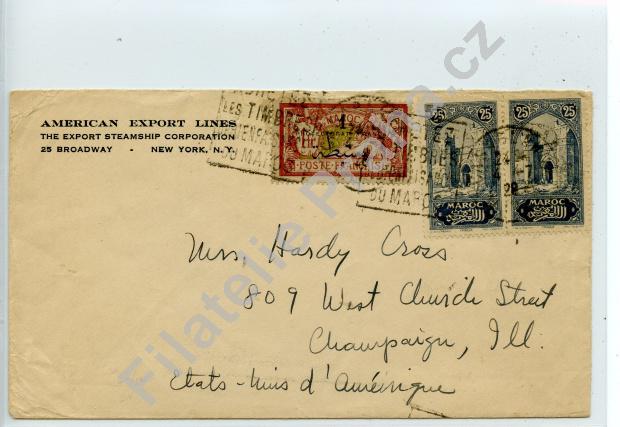 AMERICAN EXPORT LINES
THE EXPORT STEAMSHIP CORPORATION
25 BROADWAY - NEW YORK, N.Y.
LES TIMB
DU MAROC
MAROC
POSTE FRANÇAISE
DU MAROC
25 25
MAROC
25 25
MAROC
24
28
Mrs. Hardy Cross
809 West Church Street
Champaign, Ill.
Etats-Unis d'Amérique
Filatelie Praha.cz